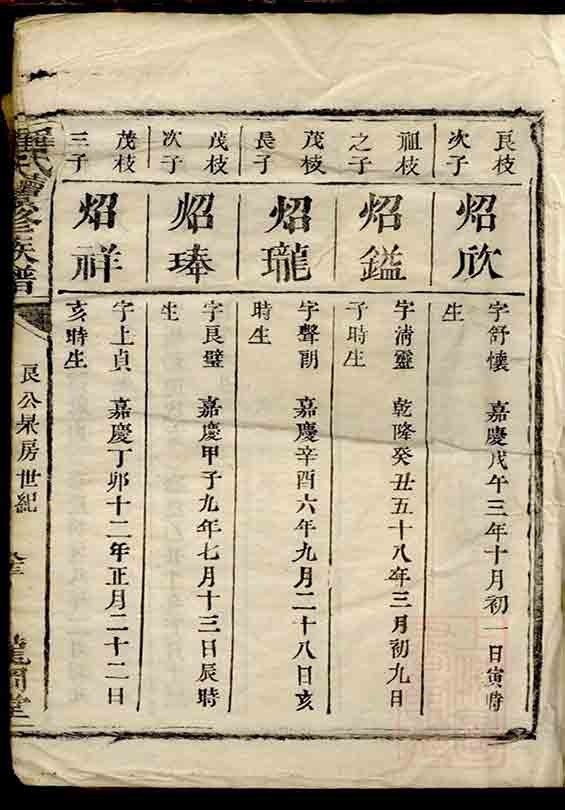 良枝
次子
炤欣
字舒懷 嘉慶戊午三年十月初一日寅時
生
祖枝
之子
炤鎰
字淸靈 乾隆癸丑五十八年三月初九日
子時生
茂枝
長子
炤瓏
字聲朗 嘉慶辛酉六年九月二十八日亥
時生
茂枝
次子
炤琫
字良璧 嘉慶甲子九年七月十三日辰時
生
茂枝
三子
炤祥
字上貞 嘉慶丁卯十二年正月二十二日
亥時生
氏續修族譜
良公杲房世紀
堂